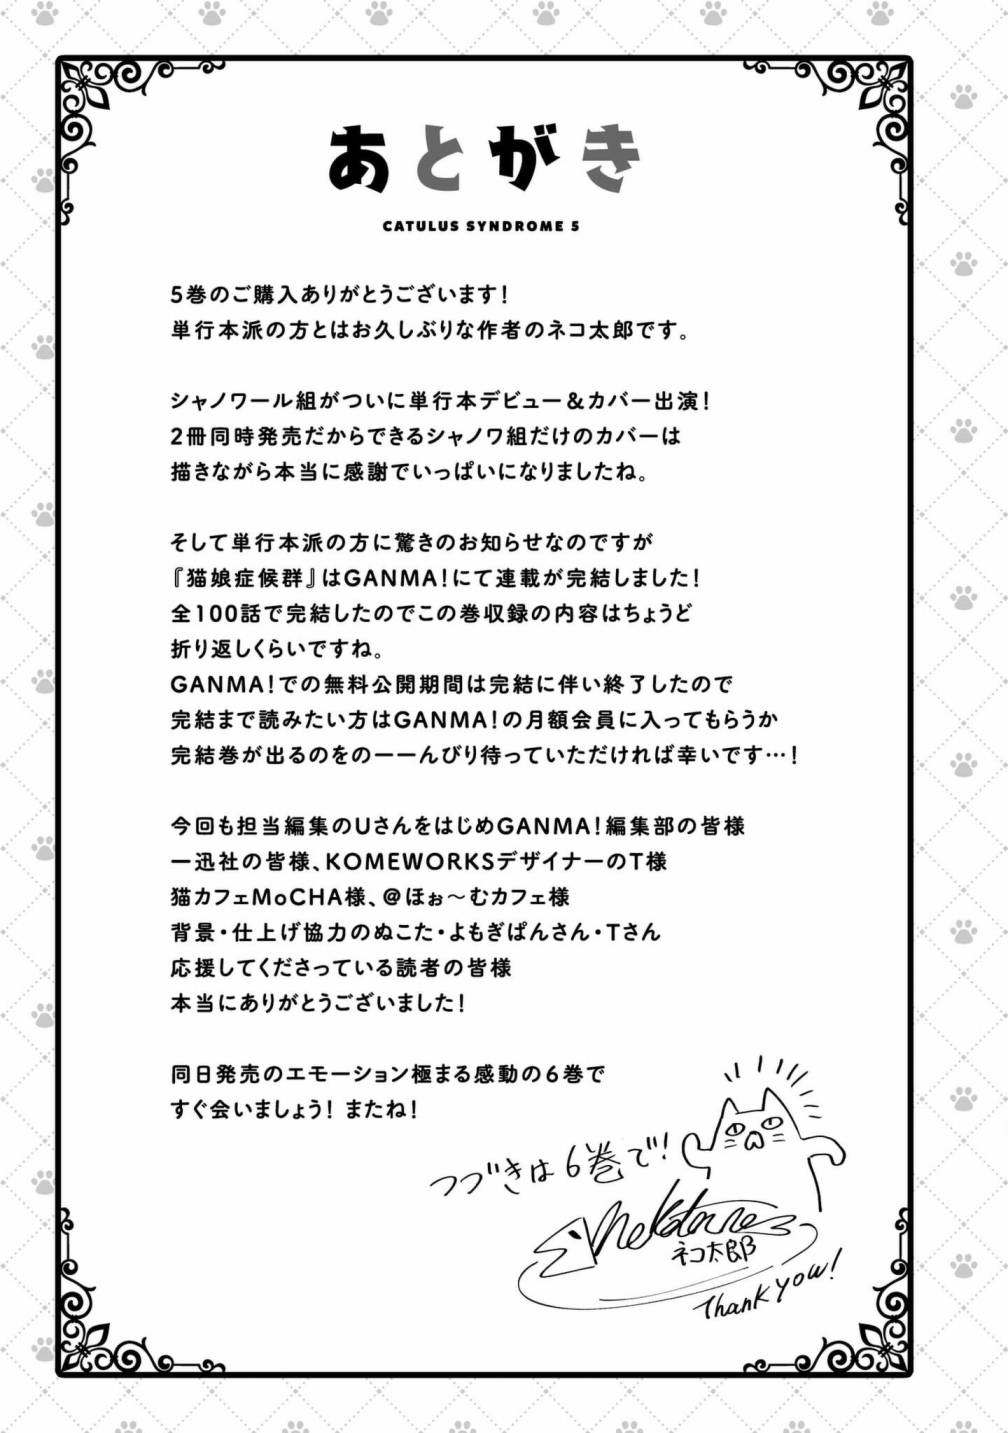 あとがき
CATULUS SYNDROME 5
5巻のご購入ありがとうございます！
単行本派の方とはお久しぶりな作者のネコ太郎です。
シャノワール組がついに単行本デビュー＆カバー出演！
2冊同時発売だからできるシャノワ組だけのカバーは
描きながら本当に感謝でいっぱいになりましたね。
そして単行本派の方に驚きのお知らせなのですが
『猫娘症候群』はGANMA！にて連載が完結しました！
全100話で完結したのでこの巻収録の内容はちょうど
折り返しくらいですね。
GANMA！での無料公開期間は完結に伴い終了したので
完結まで読みたい方はGANMA！の月額会員に入ってもらうか
完結巻が出るのをのーーんびり待っていただければ幸いです…！
今回も担当編集のUさんをはじめGANMA！編集部の皆様
一迅社の皆様、KOMEWORKSデザイナーのT様
猫カフェMoCHA様、＠ほぉ〜むカフェ様
背景・仕上げ協力のぬこた・よもぎぱんさん・Tさん
応援してくださっている読者の皆様
本当にありがとうございました！
同日発売のエモーション極まる感動の6巻で
すぐ会いましょう！またね！
つづきは6巻で！
ネコ太郎
Thank you!